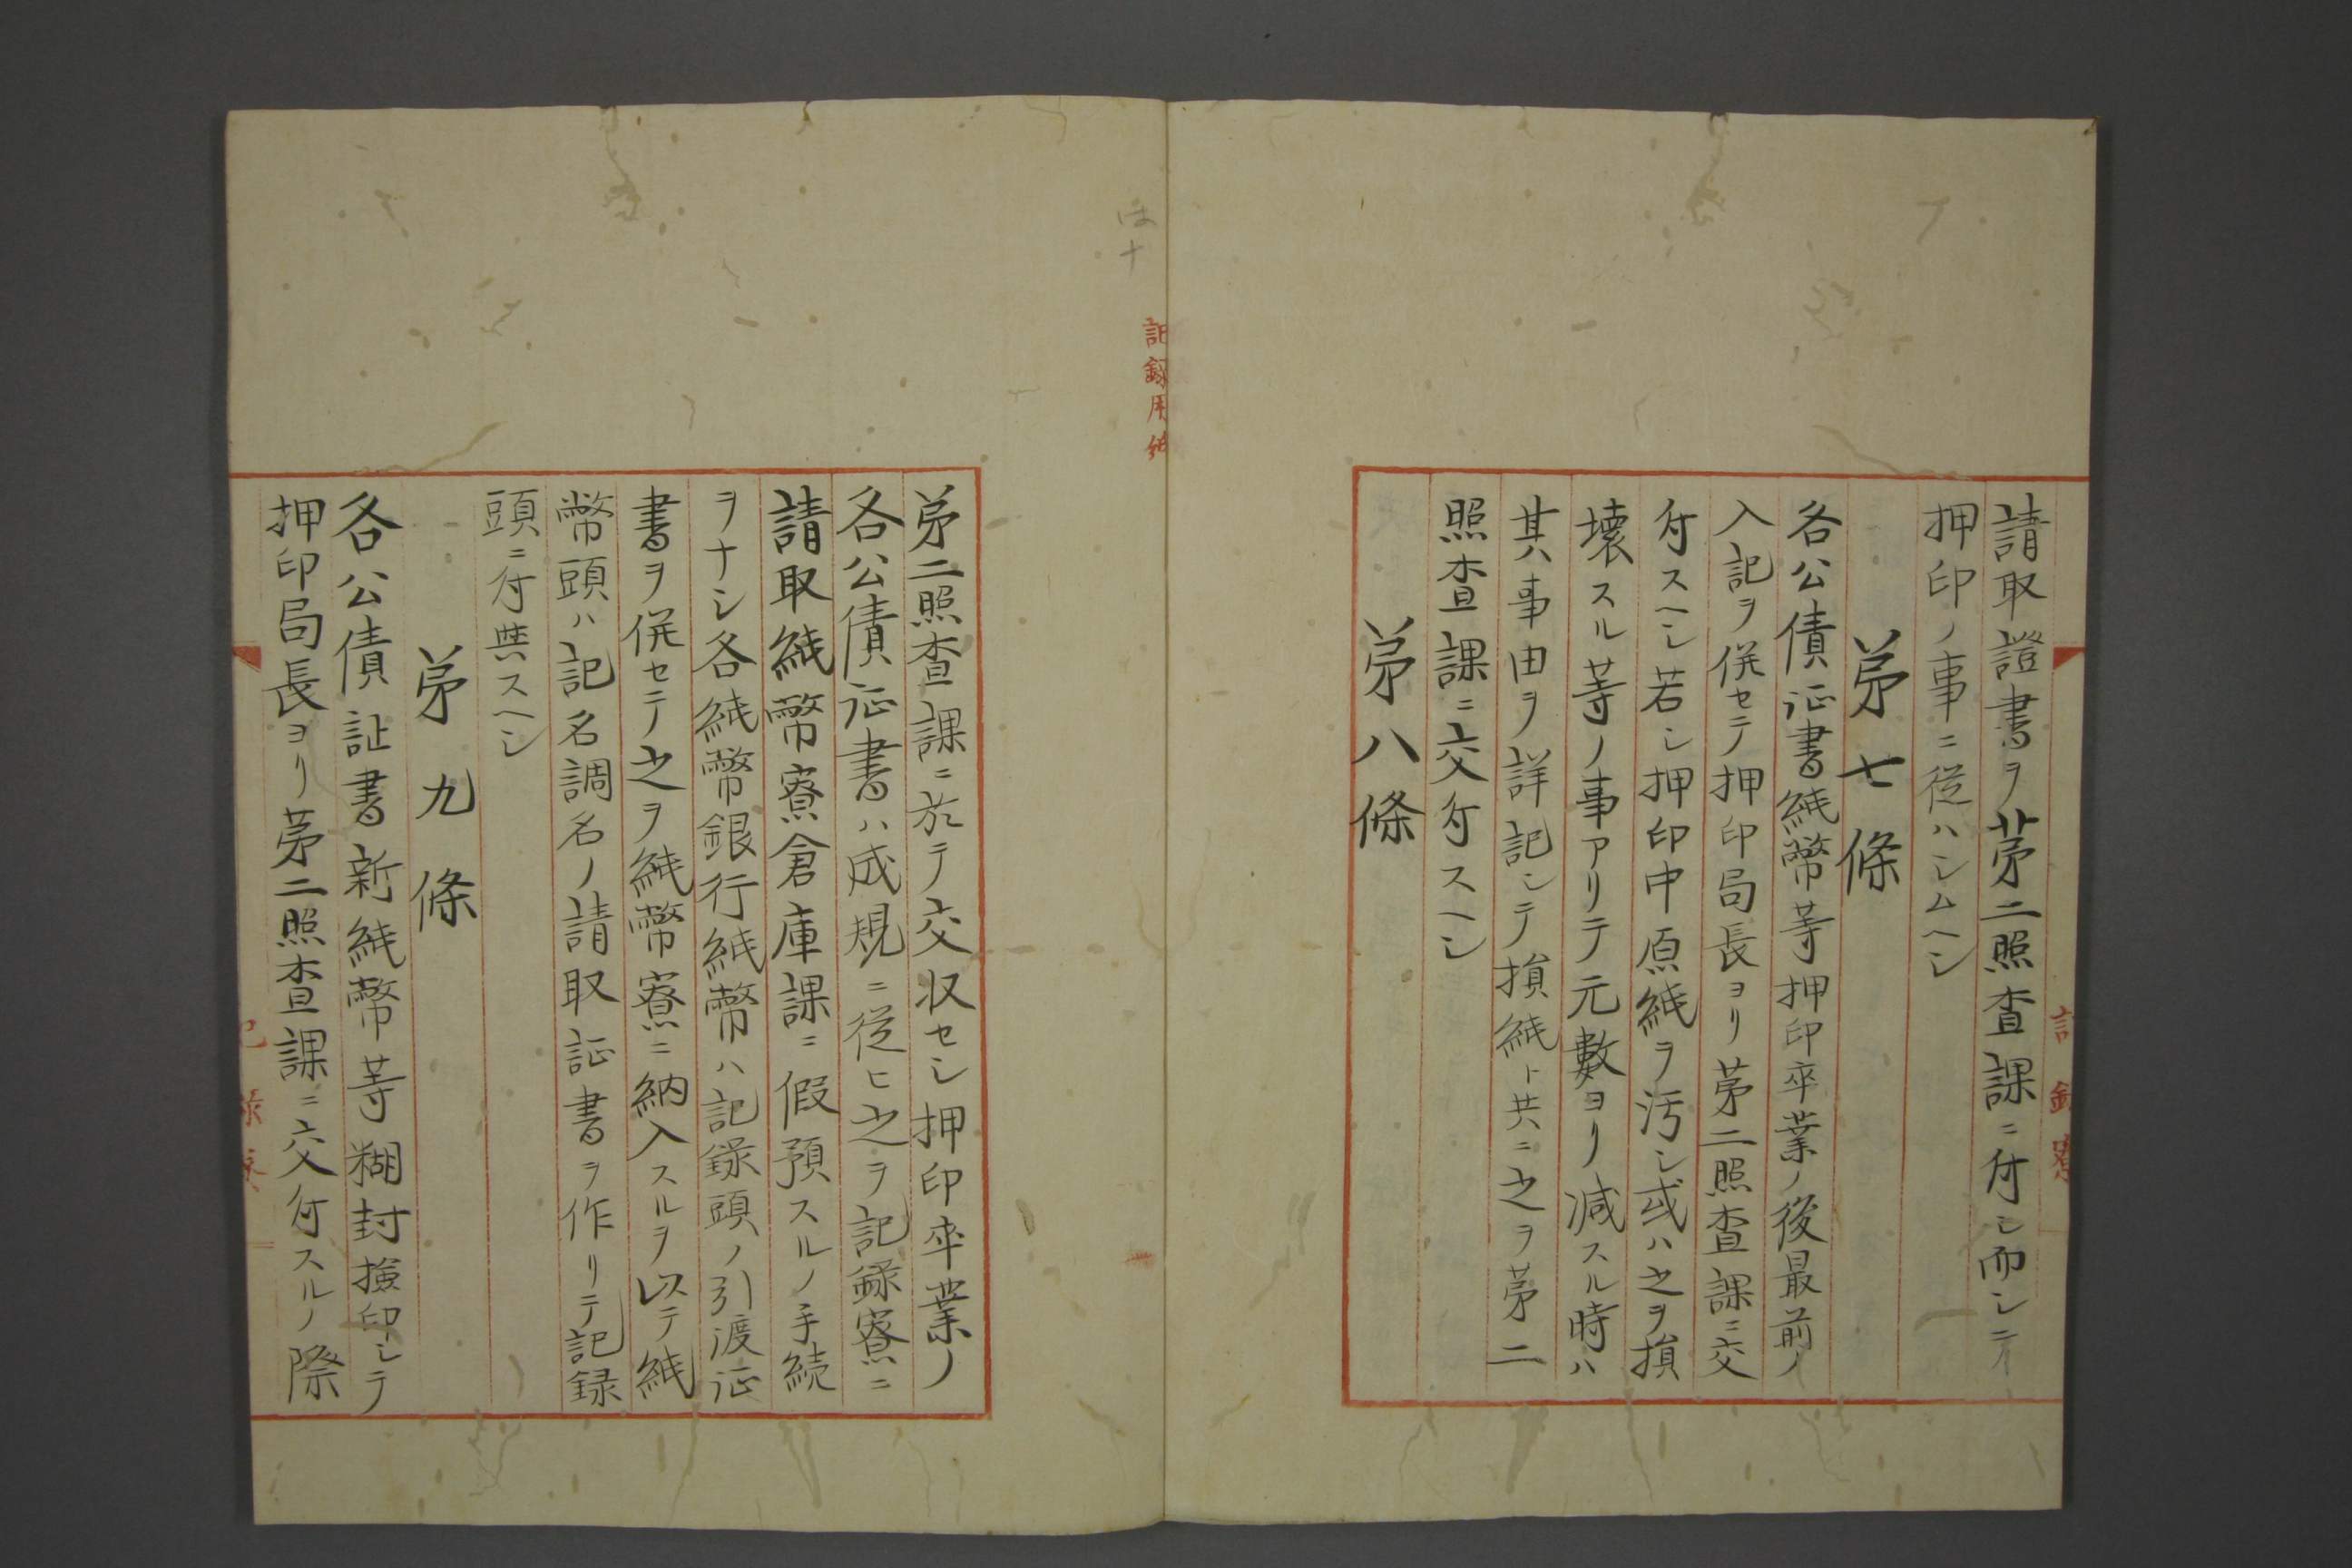 請取證書ヲ第二照査課ニ付シ而シテ
押印ノ事ニ從ハシムヘシ
第七條
各公債証書紙幣等押印卒業ノ後最前ノ
入記ヲ併セテ押印局長ヨリ第二照査課ニ交
付スヘシ若シ押印中原紙ヲ汚シ或ハ之ヲ損
壊スル等ノ事アリテ元數ヨリ減スル時ハ
其事由ヲ詳記シテ損紙ト共ニ之ヲ第二
照査課ニ交付スヘシ
第八條
記録用紙
第二照査課ニ於テ交収セシ押印卒業ノ
各公債証書ハ成規ニ從ヒ之ヲ記録寮ニ
請取紙幣寮倉庫課ニ假預スルノ手続
ヲナシ各紙幣銀行紙幣ハ記録頭ノ引渡証
書ヲ併セテ之ヲ紙幣寮ニ納入スルヲ以テ紙
幣頭ハ記名調名ノ請取証書ヲ作リテ記録
頭ニ付與スヘシ
第九條
各公債証書新紙幣等糊封撿印シテ
押印局長ヨリ第二照査課ニ交付スルノ際